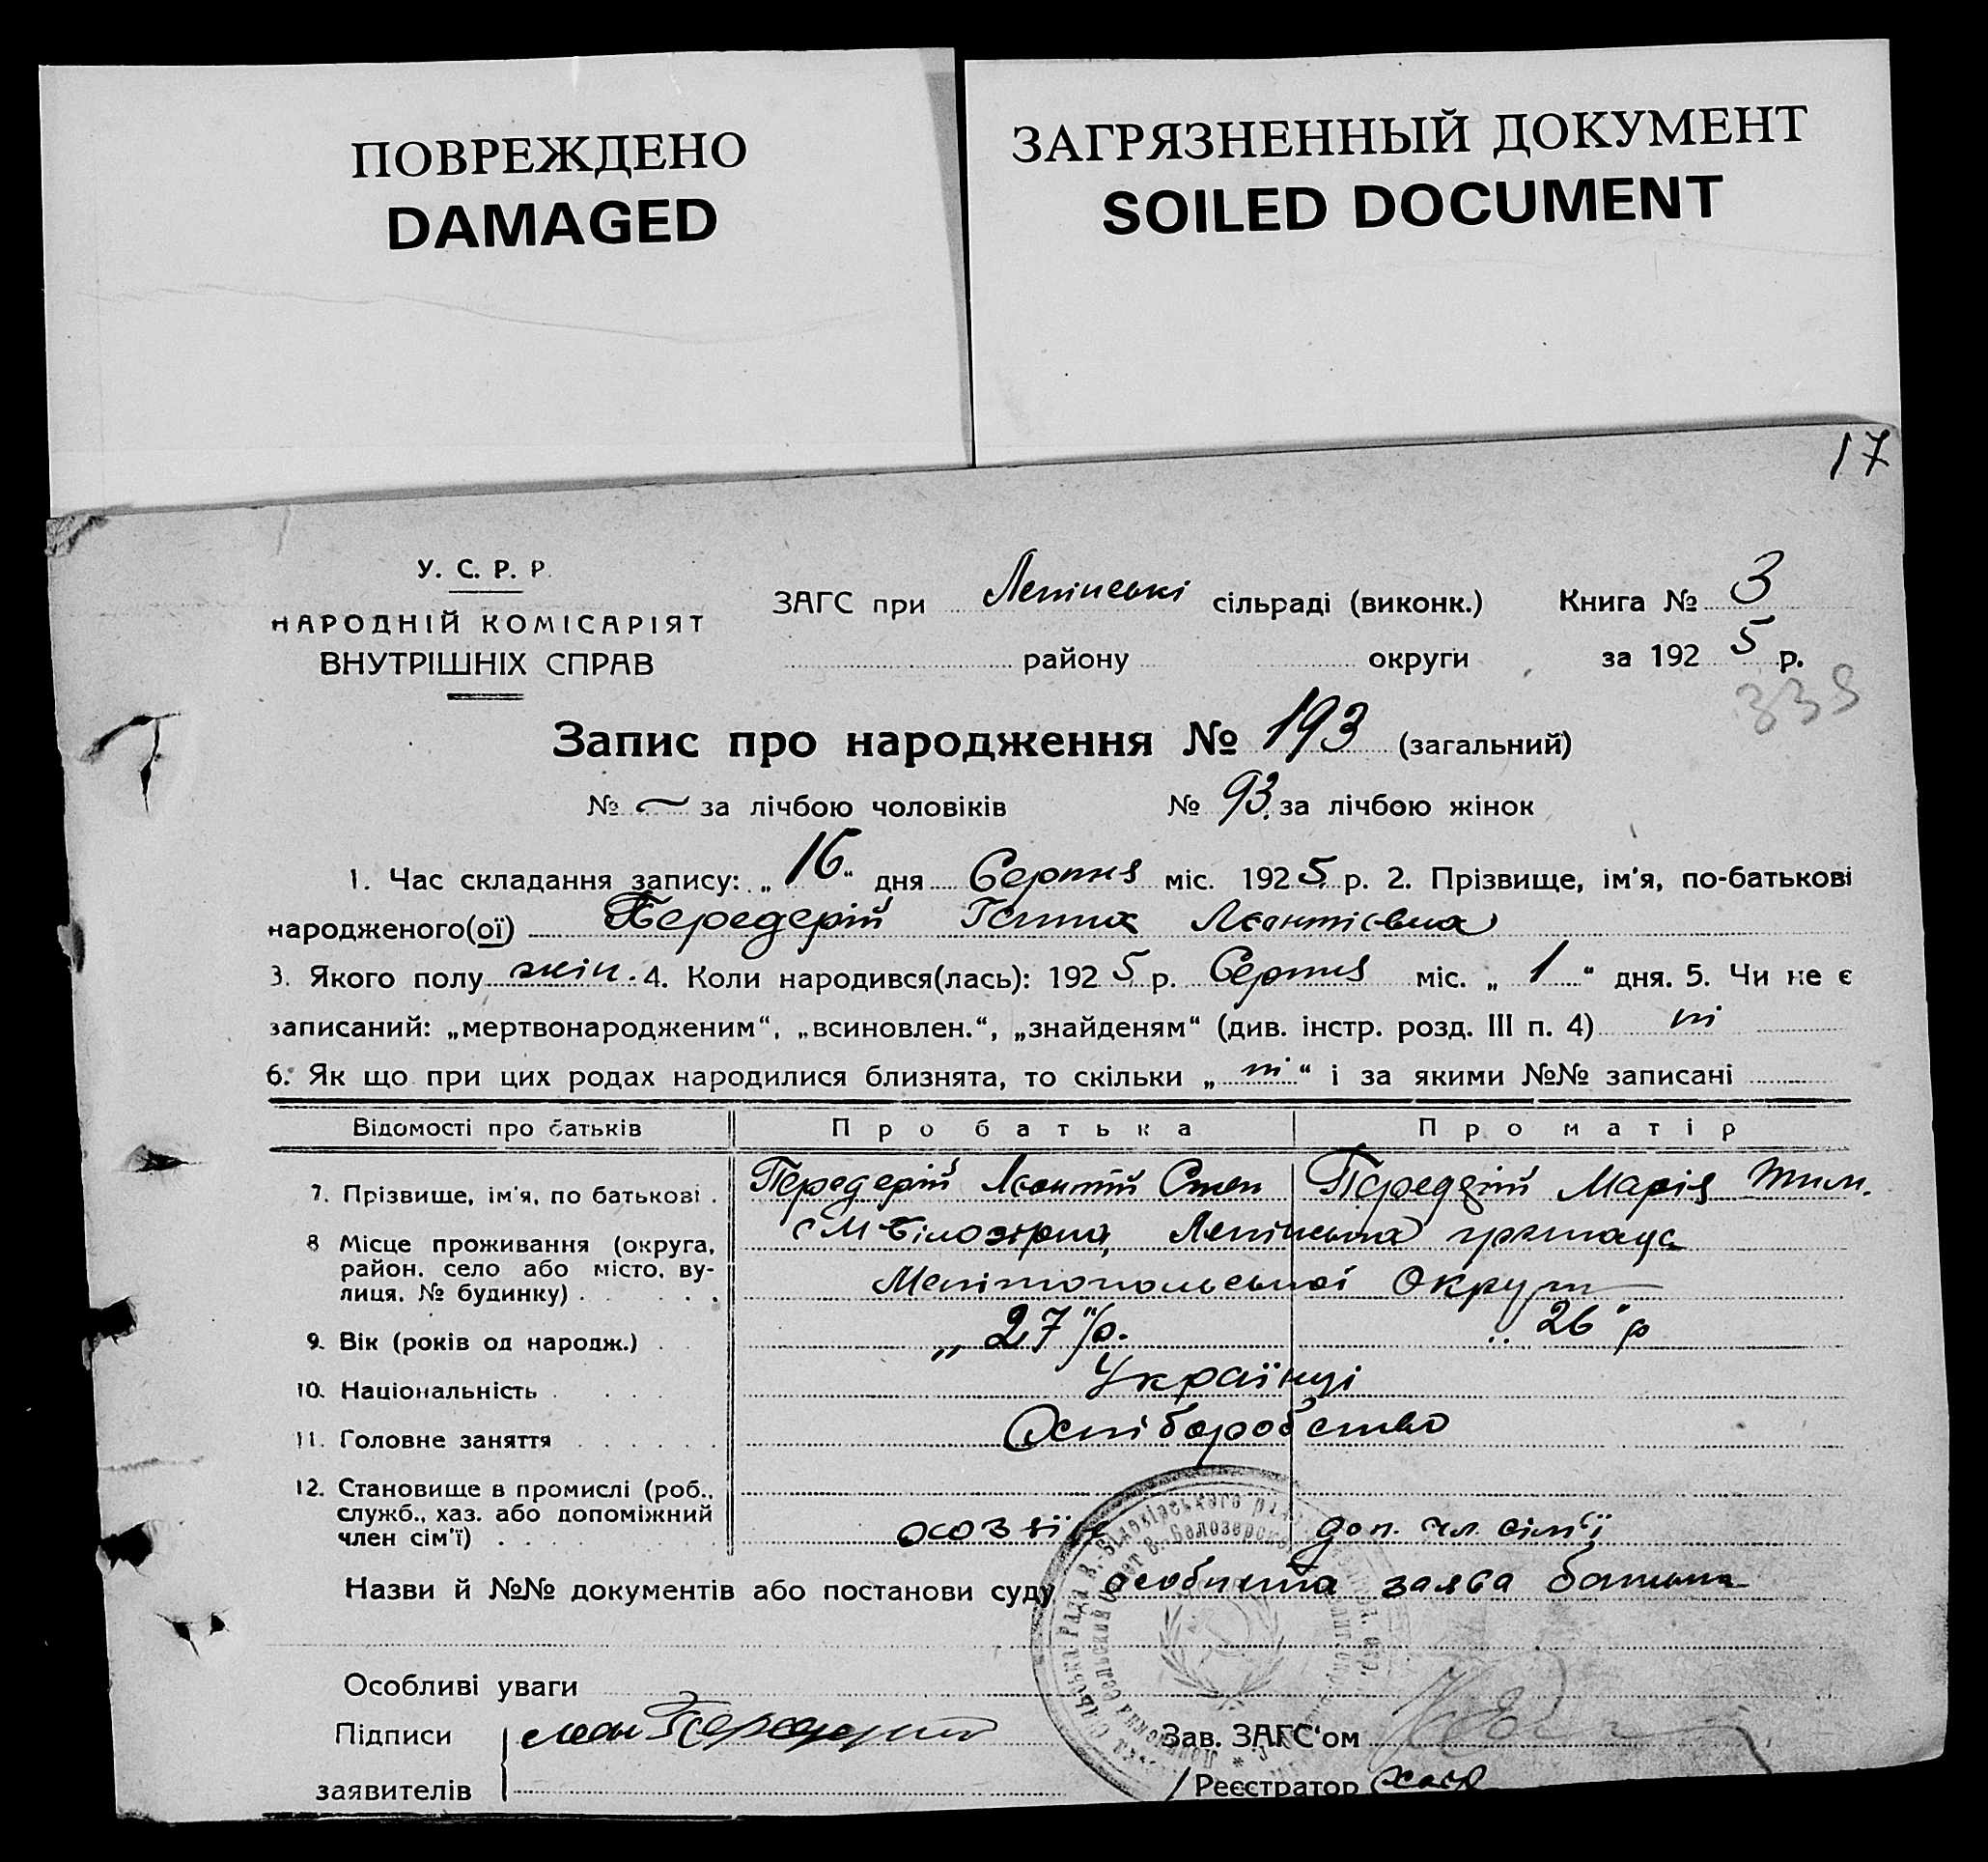 ПОВРЕЖДЕНО
DAMAGED
ЗАГРЯЗНЕННЫЙ ДОКУМЕНТ
SOILED DOCUMENT
17
У. С. Р. Р.
НАРОДНІЙ КОМІСАРІЯТ
ВНУТРІШНІХ СПРАВ
ЗАГС при Ленінські сільраді (виконк.) Книга № 3
району округи за 192 5 р.
339
Запис про народження № 193 (загальний)
№ — за лічбою чоловіків № 93. за лічбою жінок
1. Час складання запису: „ 16 “ дня Серпня міс. 192 5 р. 2. Прізвище, ім'я, по-батькові
народженого(ої) Передерій Ганна Леонтіевна
3. Якого полу жін. 4. Коли народився(лась): 192 5 р. Серпня міс. „ 1 “ дня. 5. Чи не є
записаний: „мертвонародженим“, „всиновлен.“, „знайденям“ (див. інстр. розд. III п. 4) ні
6. Як що при цих родах народилися близнята, то скільки „ ні “ і за якими №№ записані
Відомості про батьків Про батька Про матір
7. Прізвище, ім'я, по батькові . Передерій Леонтій Степ Передерій Марія Тим.
8 Місце проживання (округа, район, село або місто, вулиця, № будинку) . . . . . с М Білозірка, Ленінська громада
Мелітопольської Округи
9. Вік (років од народж.) . . „ 27 “ р. „ 26 “ р
10. Національність . . . . . Українці
11. Головне заняття . . . . . . Хліборобство
12. Становище в промислі (роб., служб., хаз. або допоміжний член сім'ї) . . . . хозяїн доп. чл. сім'ї
Назви й №№ документів або постанови суду особиста заява батька
Особливі уваги
Підписи Передерий
заявителів
Зав. ЗАГС'ом
Реєстратор